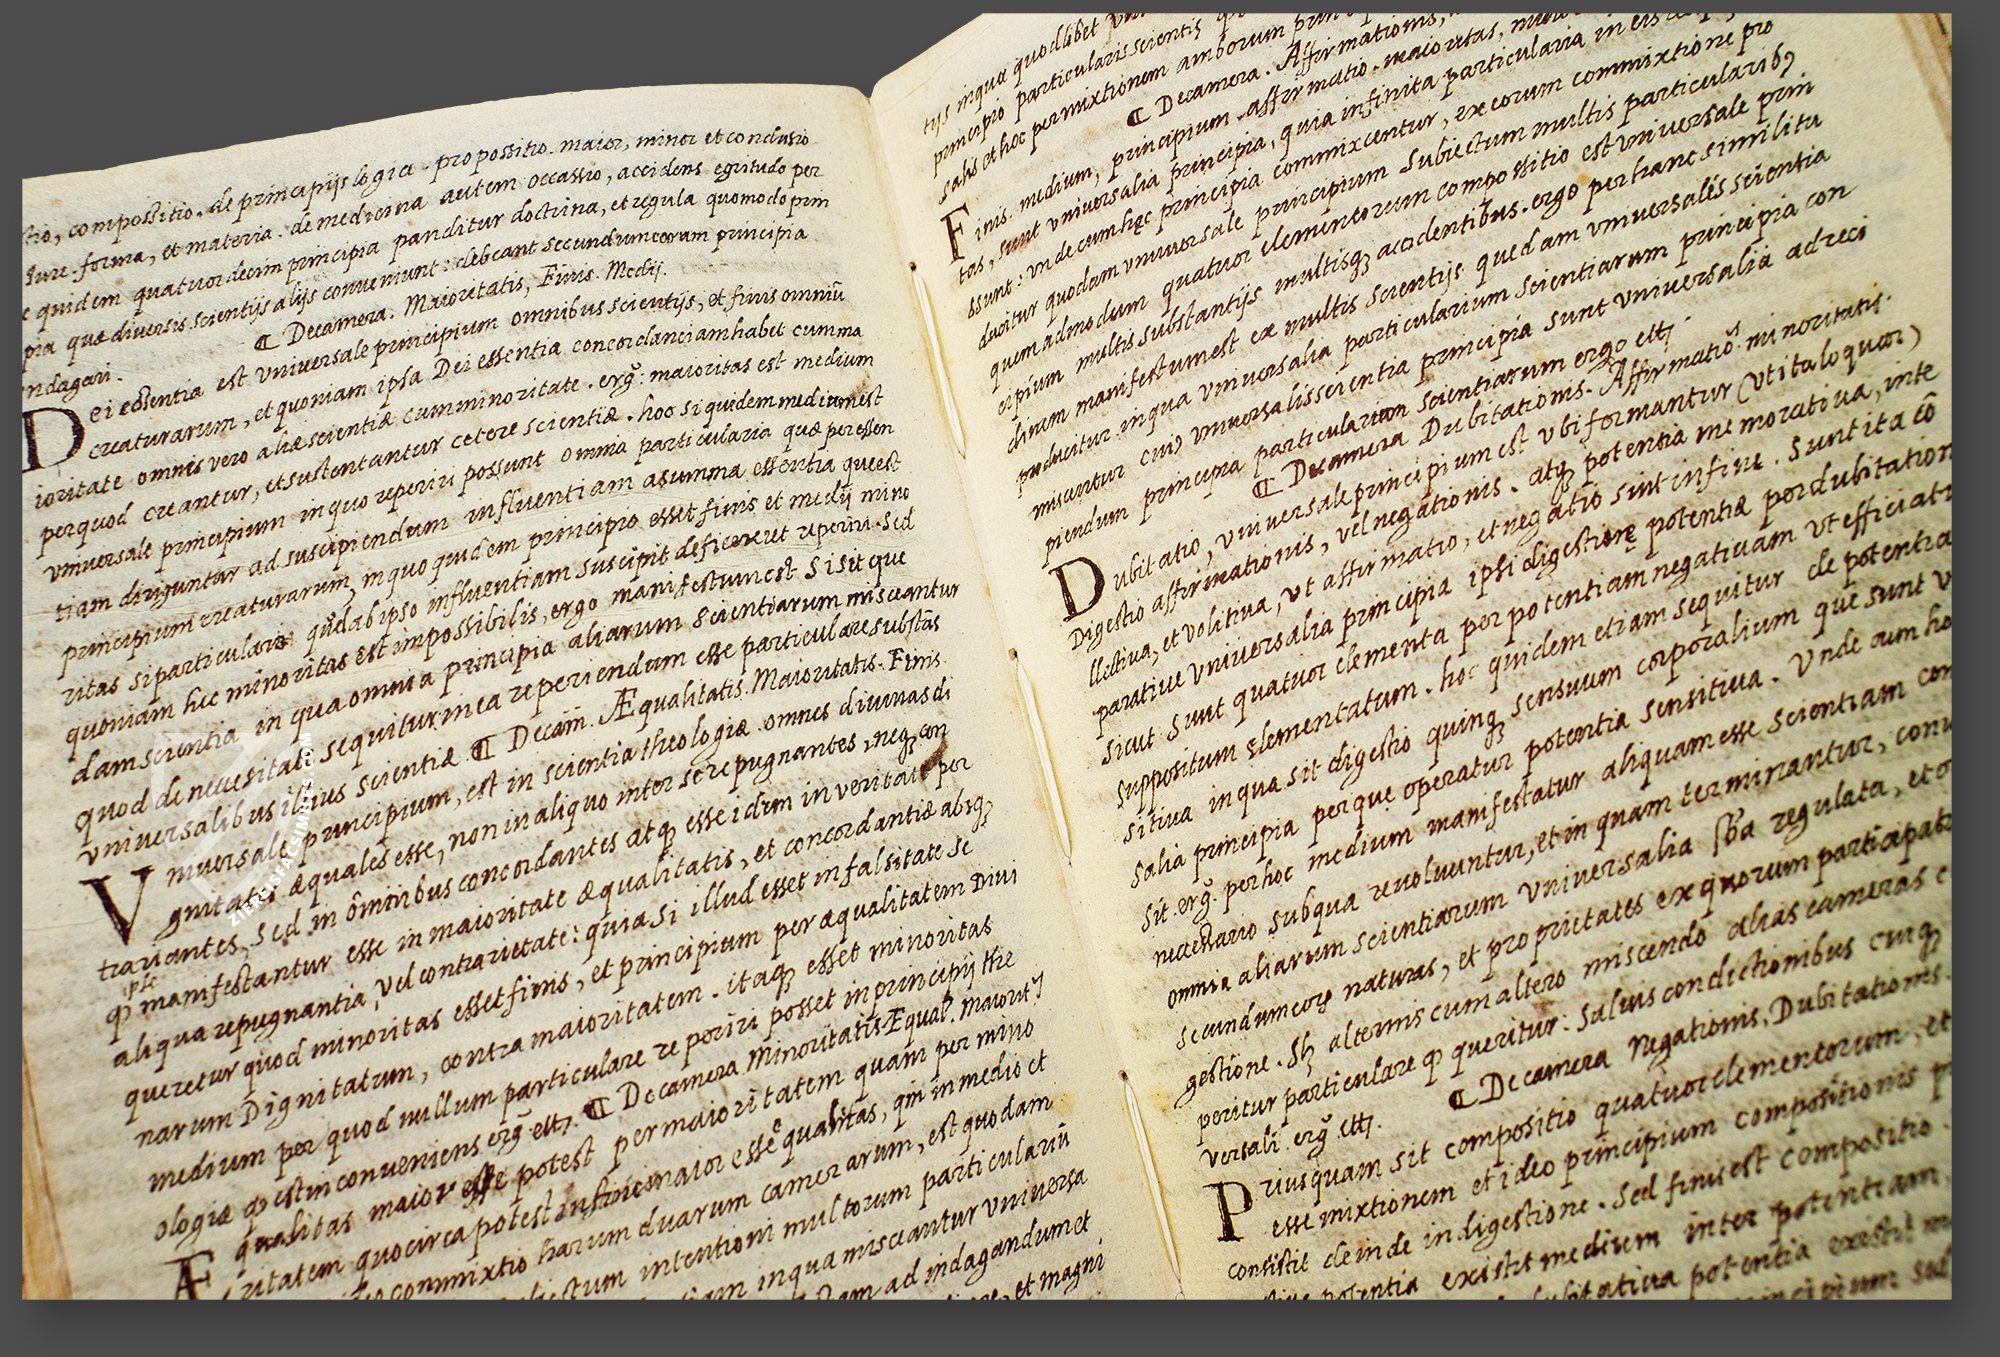 tio, compossitio. de principijs logice. propossitio. maior, minor et conclusio
Iure. forma, et materia. de medicina autem occassio, accidens egritudo per
quidem quatuordecim principia panditur doctrina, et regula quomodo prin
pia que diversis scientijs alijs conveniunt: debeant secundum eorum principia
ndagari. ¶ De camera. Maioritatis, Finis. Medij.
Dei essentia est universale principium omnibus scientijs, et finis omniū
creaturarum, et quoniam ipsa Dei essentia concordanciam habet cum ma
ioritate omnis vero aliæ scientiæ cum minoritate. ergȝ: maioritas est medium
per quod creantur, et sustentantur cetere scientiæ. hoc si quidem medium est
universale principium in quo reperiri possunt omnia particularia quæ per essen
tiam diriguntur ad suscipiendum influentiam a summa essentia que est
principium creaturarum, in quo quidem principio esset finis et medij mino
ritas si particularis quædab ipso influentiam suscipit deficeret reperiri. Sed
quoniam hec minoritas est impossibilis, ergo manifestum est Si sit que
dam scientia in qua omnia principia aliarum scientiarum misceantur
quod de necessitate sequitur in ea reperiendum esse particulare substās
universalibus illius scientiæ ¶ De cam. Æqualitatis. Maioritatis. Finis
Vniversale principium, est in scientia theologiæ omnes divinas di
gnitates æquales esse, non in aliquo inter se repugnantes, neqȝ con
trariantes, sed in ōminbus concordantes atqȝ esse idem in veritate per
ipse
qȝ manifestantur esse in maioritate æqualitatis, et concordantiæ absqȝ
aliqua repugnantia, vel contrarietate: quia si illud esset in falsitate se
queretur quod minoritas esset finis, et principium per æqualitatem Divi
narum Dignitatum, contra maioritatem. itaqȝ esset minoritas
medium per quod nullum particulare reperiri posset in principij the
ologiæ qȝ est inconveniens ergȝ ett. ¶ De camera Minoritatis Æqual. Maiorit
Æqualitas maior esse potest per maioritatem quam per mino
ritatem quocirca potest maior esse equalitas, qm in medio et
commixtio harum duarum camerarum, est quodam
ectum intentioni multorum particulariū
in qua misceantur universa
am ad indagandum et
et magni
tijs inqua quodlibet
principio particularis scientis
salis et hoc permixtionem amborum
¶ De camera. Affirmationis,
Finis. medium, principium. affirmatio. maioritas,
tas, sunt universalia principia, quia infinita particularia in eis
bsunt: unde cum hęc principia commixcentur, ex eorum commixtione pro
ducitur quodam universale principium subiectum multis particularibȝ
quem admodum quatuor elementorum compossitio est universale prin
cipium multis substantijs multisqȝ accidentibus. ergo per hanc similitu
dinem manifestum est ex multis scientijs quedam universales scientia
producitur inqua universalia particularium scientiarum principia con
misuntur cuiȝ universalis scientia principia sunt universalia ad reci
piendum principia particularium scientiarum ergo ett.
¶ De camera Dubitationis. Affirmatiōs. minoritatis.
Dubitatio, universale principium est ubi formantur (ut ita loquar)
Digestio affirmationis, vel negationis. atqȝ potentia memorativa, inte
llectiva, et volitiva, ut affirmatio, et negatio sint in fine. Sunt ita cō
parative universalia principia ipsi digestionę potentiæ per dubitation
sicut sunt quatuor elementa per potentiam negativam ut efficiatur
suppositum elementatum. hoc quidem etiam sequitur de potentia
sitiva inqua sit digestio quinqȝ sensuum corporalium que sunt v
salia principia perque operatur potentia sensitiva. Unde cum ho
sit. ergȝ. per hoc medium manifestatur aliquam esse scientiam com
necessario subqua revolvuntur, et in quam terminantur, conv
omnia aliarum scientiarum Universalia sba regulata, et o
secundum eorȝ naturas, et proprietates ex quorum participati
gestione. Sȝ alternis cum altero miscendo alias cameras c
peritur particulare qȝ queritur: salvis condictionibus cuiqȝ
versali ergȝ ett. ¶ De camera negationis, Dubitationis.
Priusquam sit compositio quatuor elementorum, et
esse mixtionem et ideo principium compositionis p
consistit deinde in digestione. Sed finis est compositio.
potentia existit medium inter potentiam
bitativa potentia existit